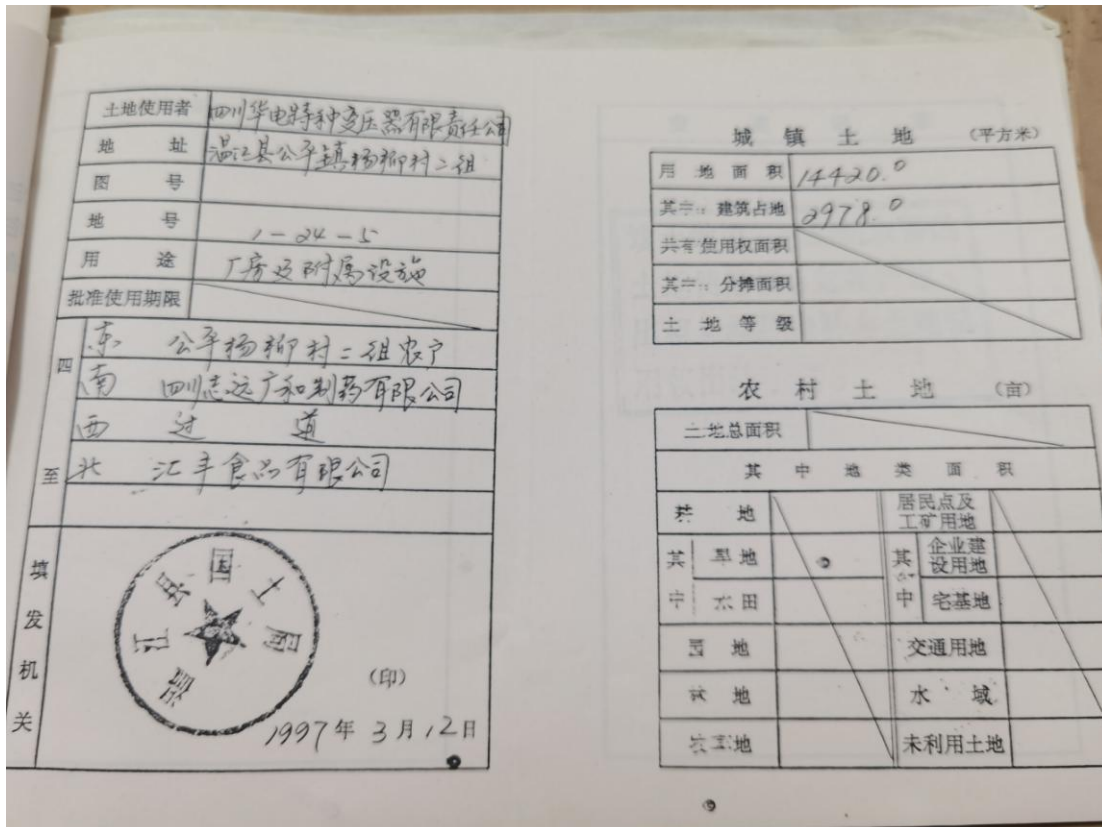 土地使用者 四川华电特种变压器有限责任公司
地址 温江县公平镇杨柳村二组
图号
地号 1-24-5
用途 厂房及附属设施
批准使用期限
四至
东 公平杨柳村二组农户
南 四川志远广和制药有限公司
西 过道
北 汇丰食品有限公司
填发机关
温江县国土局
(印)
1997年3月12日
城镇土地 (平方米)
用地面积 14420.0
其中：建筑占地 2978.0
共有使用权面积
其中：分摊面积
土地等级
农村土地 (亩)
土地总面积
其中地类面积
耕地 居民点及工矿用地
其中 旱地 其中 企业建设用地
水田 宅基地
园地 交通用地
林地 水域
牧草地 未利用土地